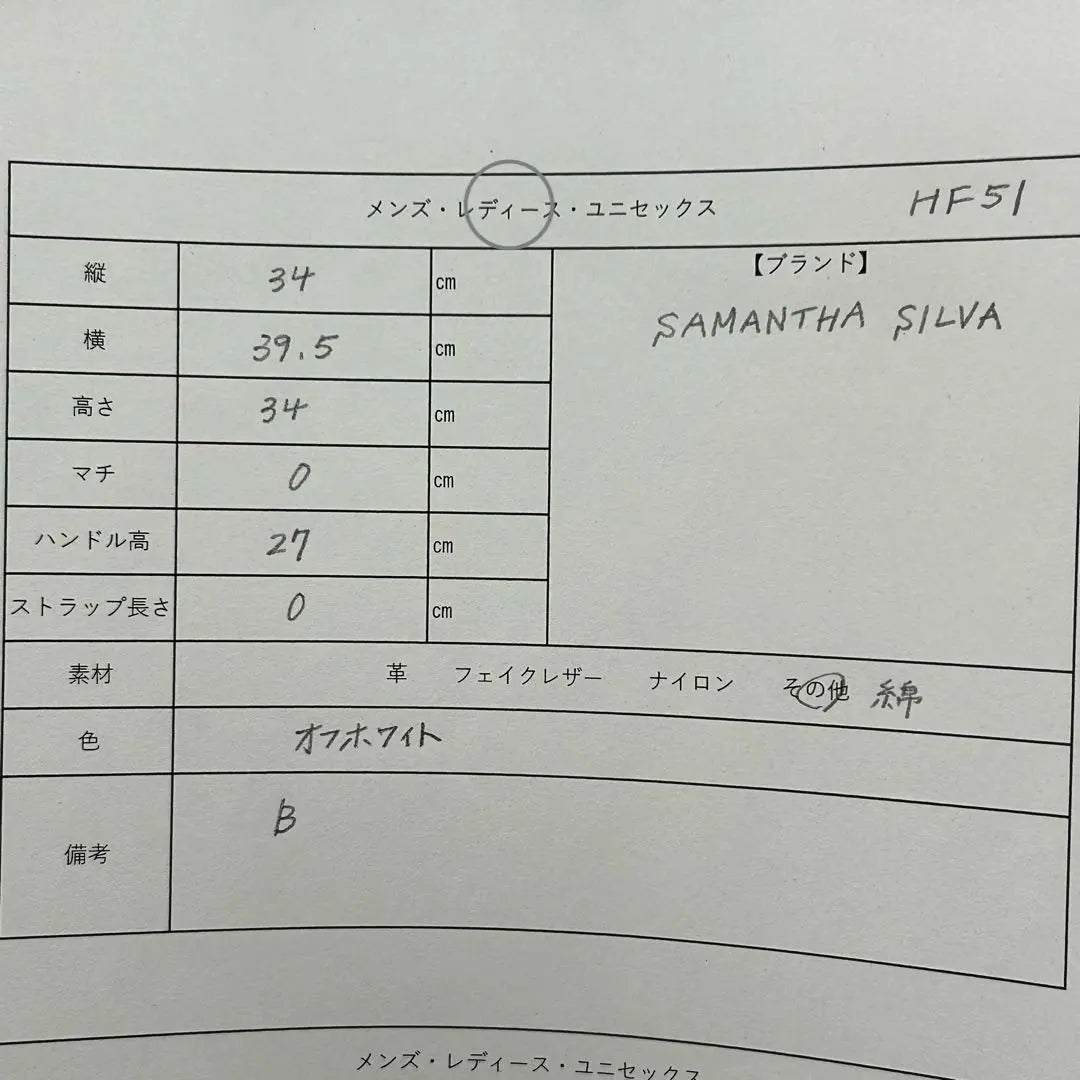 メンズ・レディース・ユニセックス HF51
縦 34 cm
【ブランド】
SAMANTHA SILVA
横 39.5 cm
高さ 34 cm
マチ 0 cm
ハンドル高 27 cm
ストラップ長さ 0 cm
素材 革 フェイクレザー ナイロン その他 綿
色 オフホワイト
備考 B
メンズ・レディース・ユニセックス